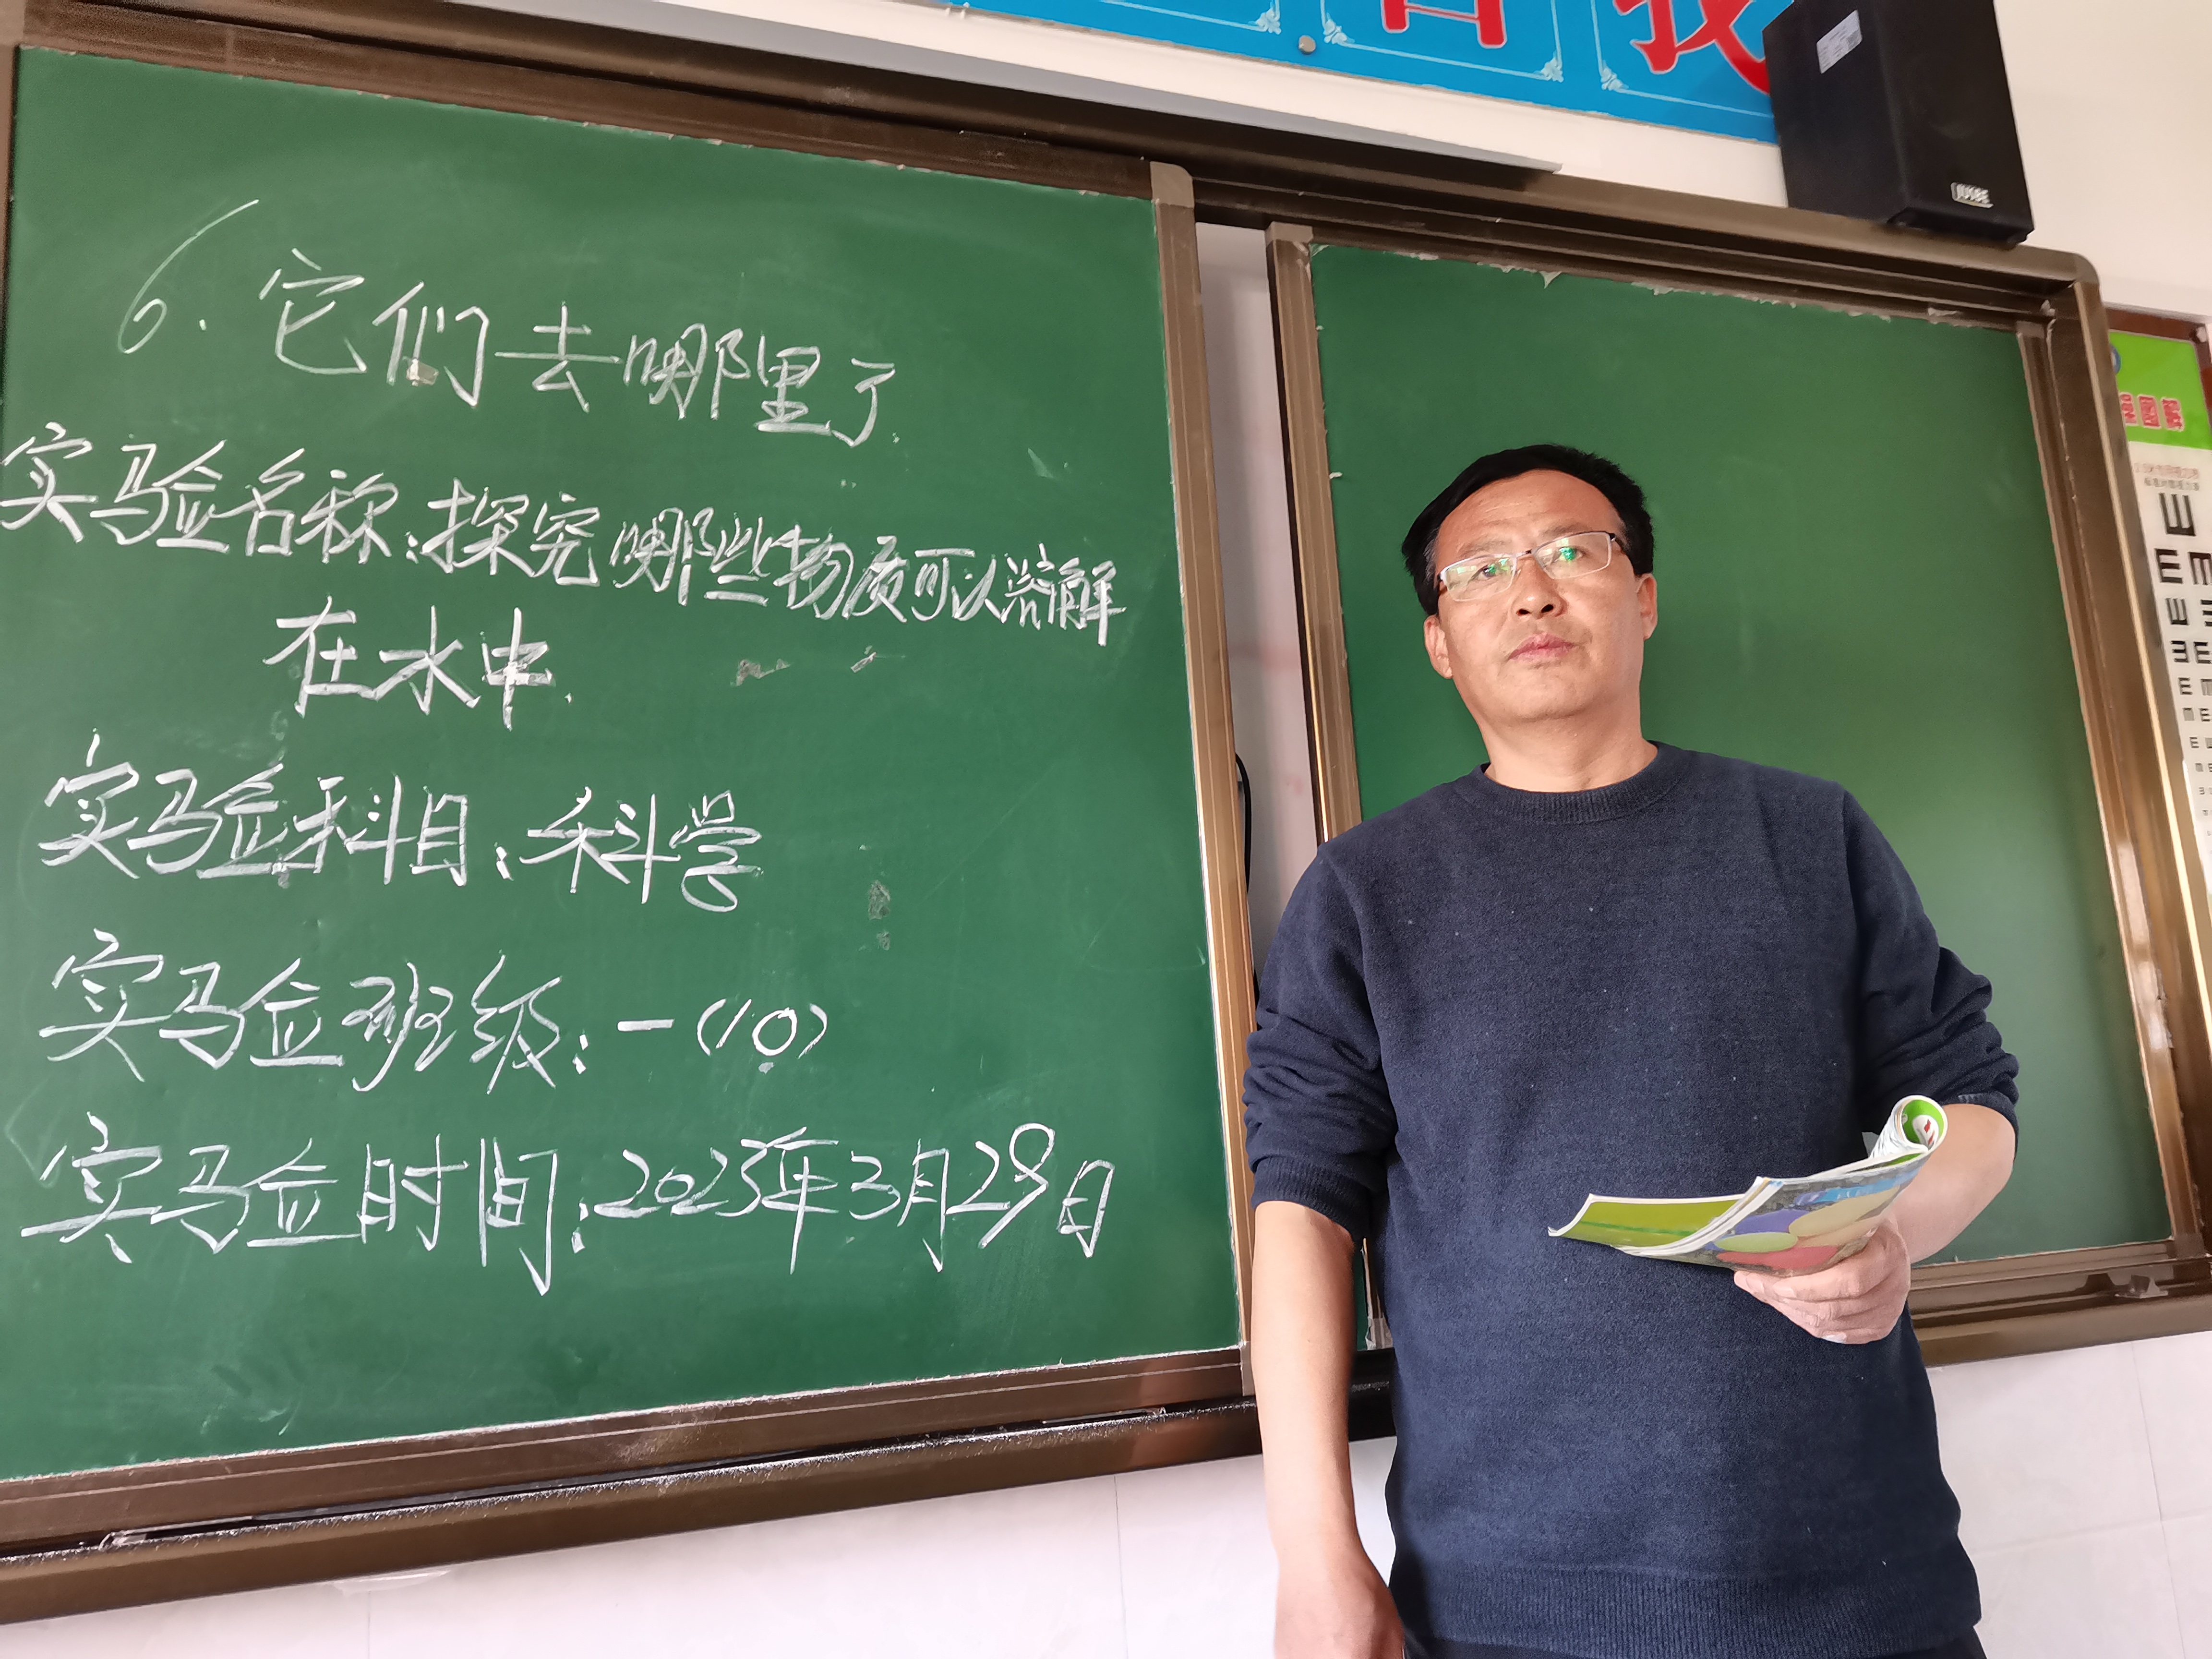 我
JUSBE
程图解
6. 它们去哪里了
实验名称:探究哪些物质可以溶解
在水中.
实验科目:科学
实验班级:一(10)
实验时间:2023年3月29日